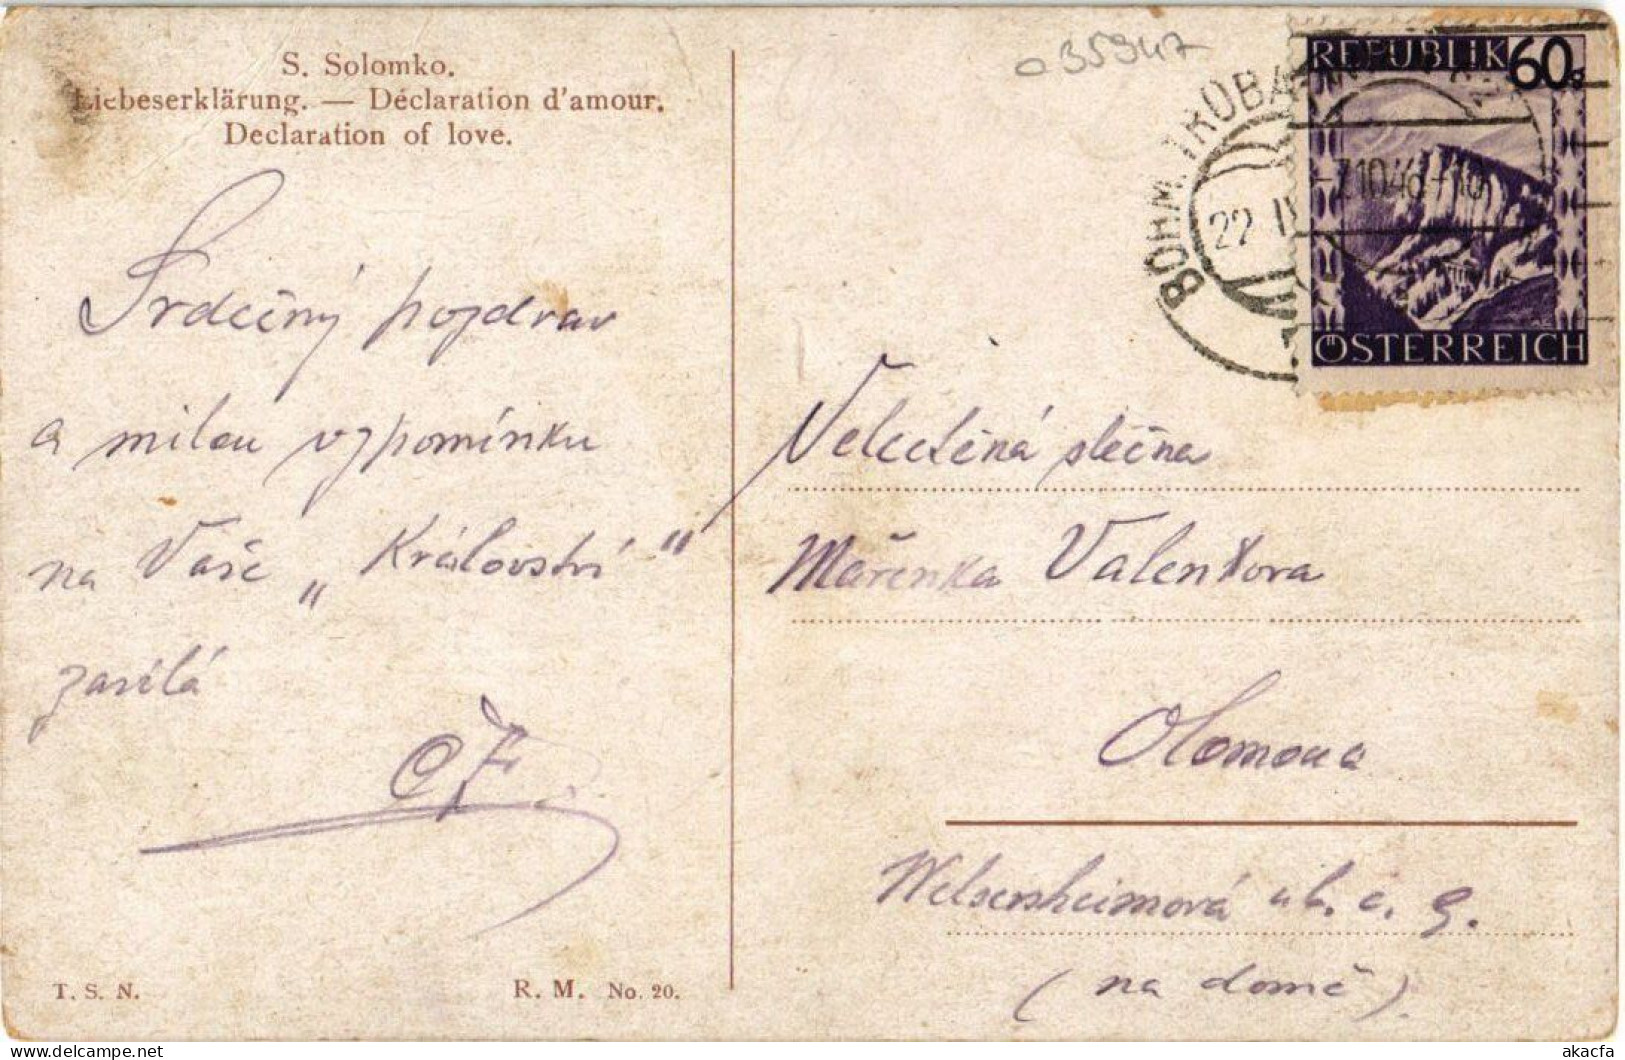 S. Solomko.
Liebeserklärung. — Déclaration d'amour.
Declaration of love.
a 35947
REPUBLIK 60g
ÖSTERREICH
BÖHM. TRÜBAU
22. IX
7.10.46 - 10
Srdečný pozdrav
a milou vzpomínku
na Vaše „Království"
zasílá
Velectěná slečna
Mařenka Valentova
Olomouc
Welsersheimová ul. č. 9.
(na domě).
T. S. N.
R. M. No. 20.
akacfa